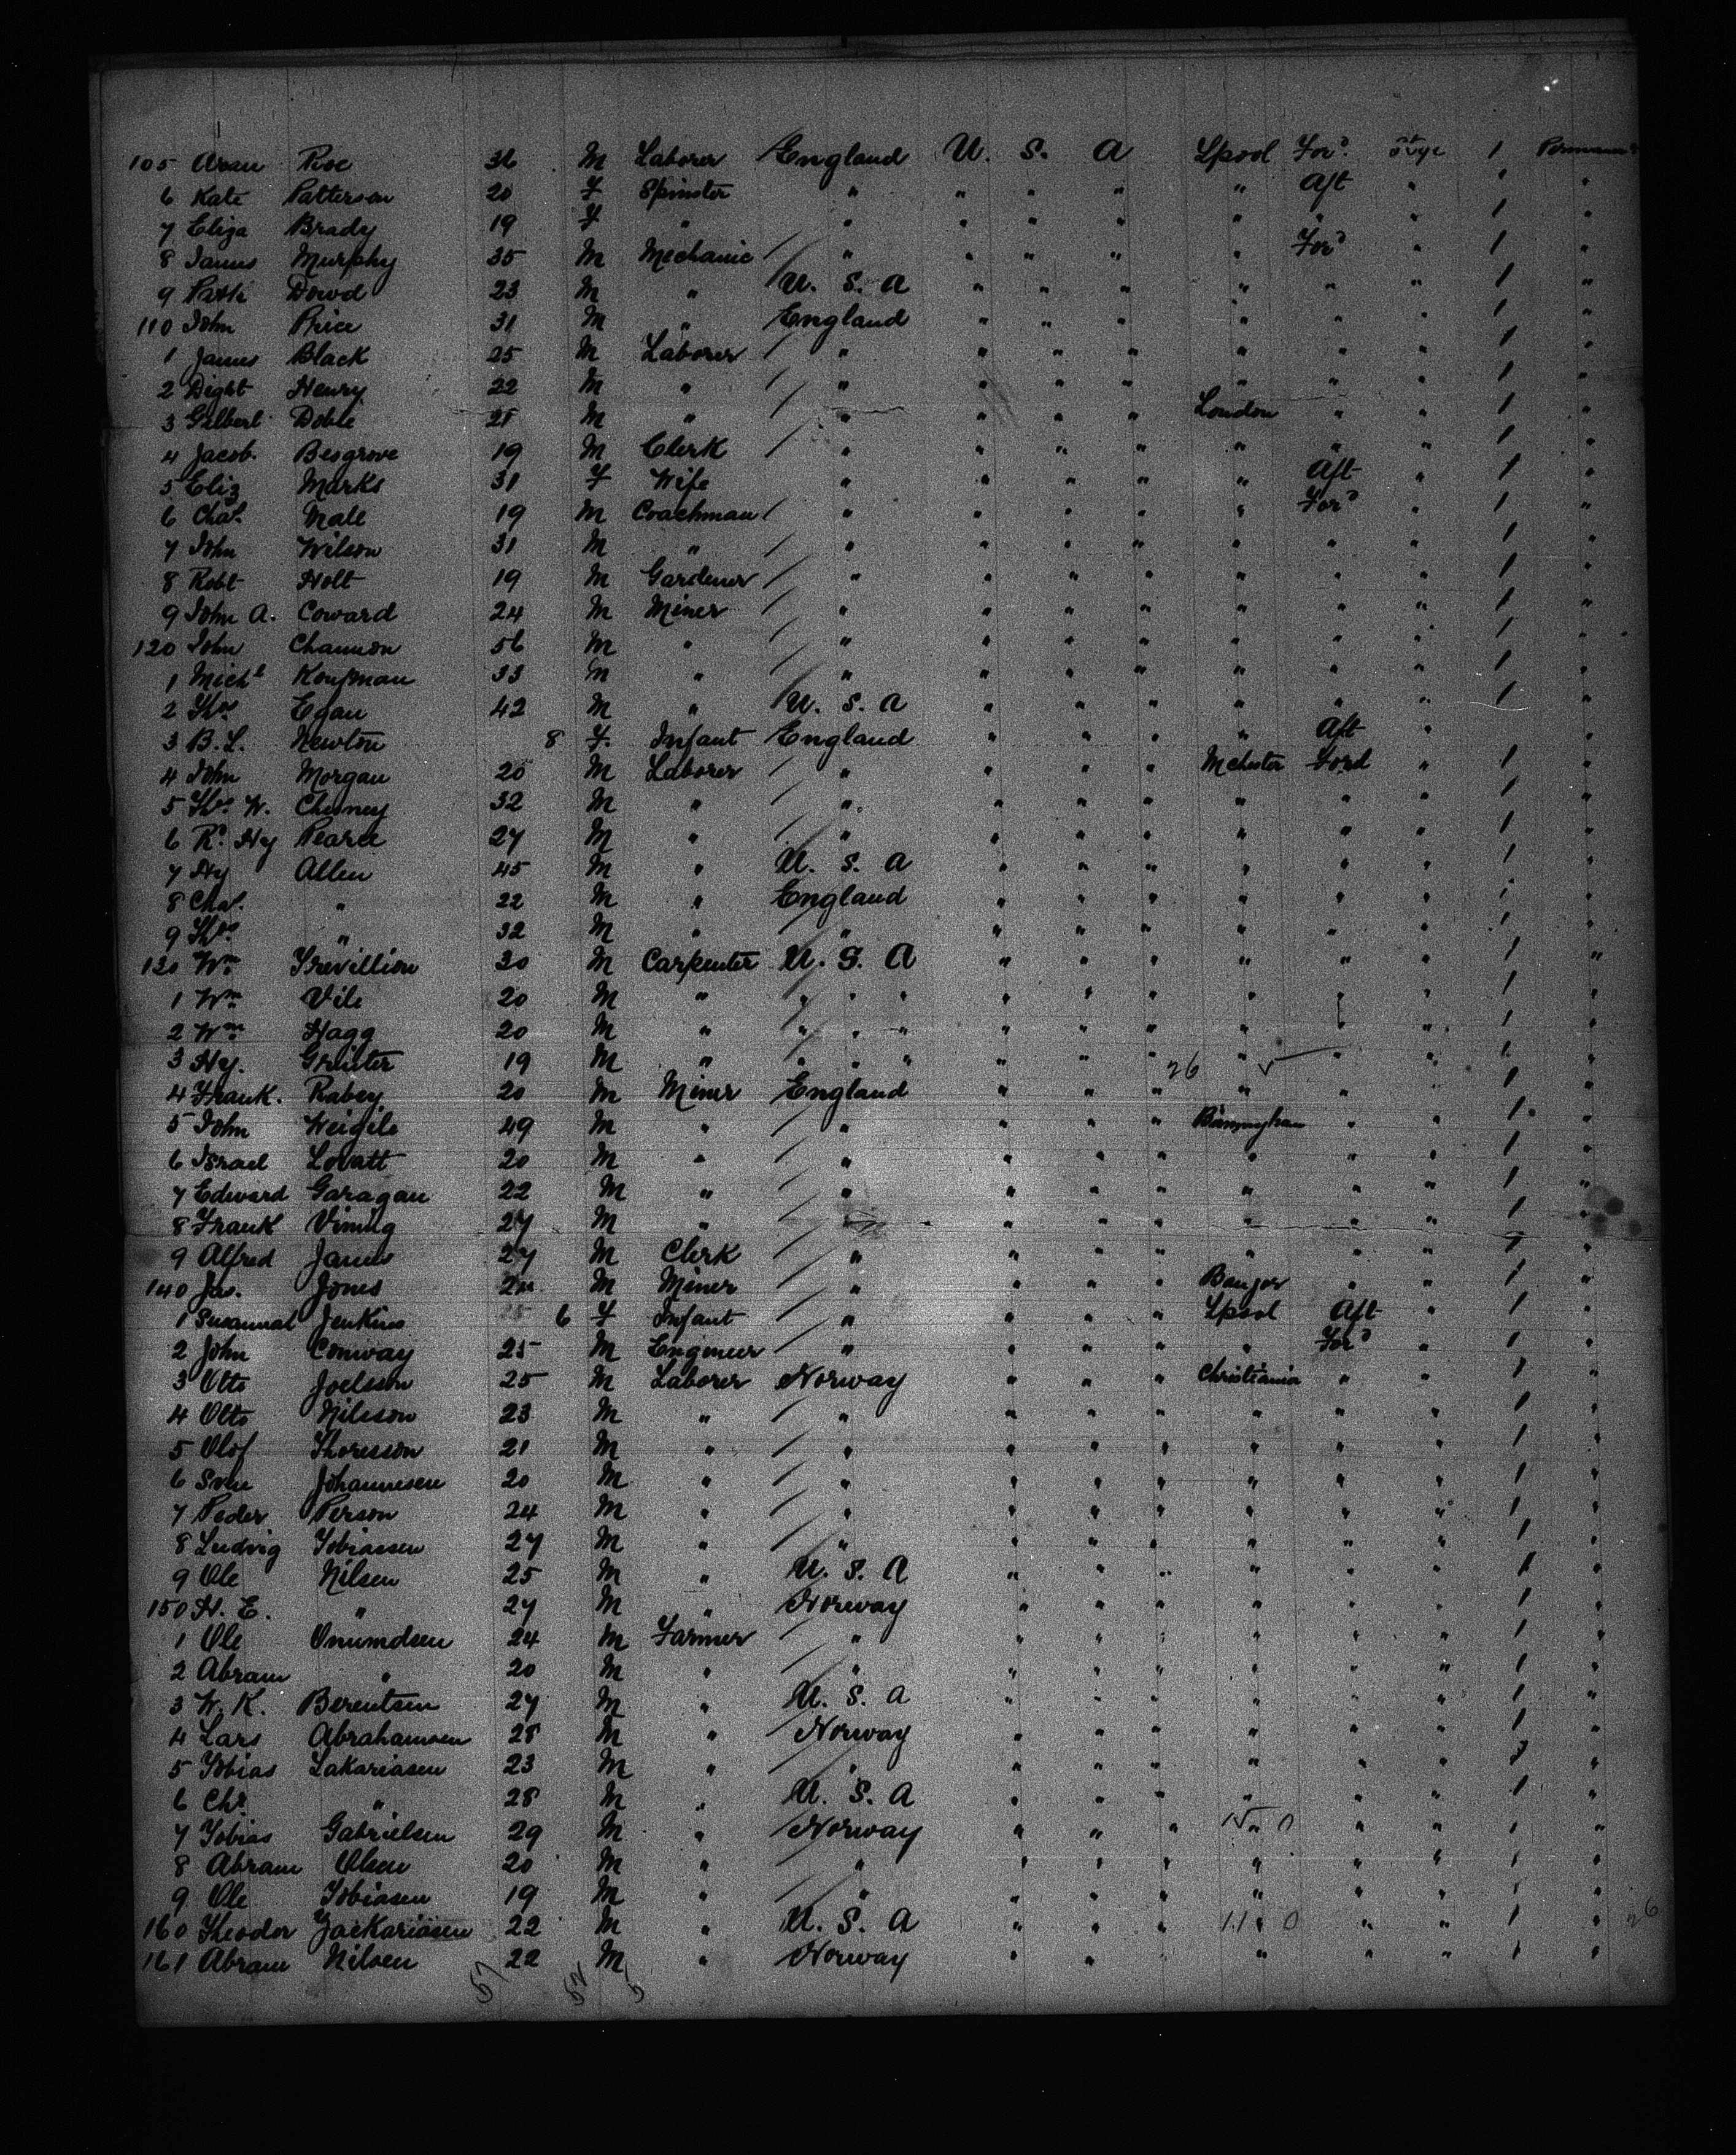 105 Aran Roe 36 M Laborer England U. S. A Lpool For^d Stge 1
6 Kate Patterson 20 F Spinster " " " " " Aft " 1 "
7 Eliza Brady 19 F " " " " " " " " 1 "
8 James Murphy 35 M Mechanic " " " " " For^d " 1 "
9 Patk Dowd 23 M " U. S. A " " " " " " 1 "
110 John Price 31 M " England " " " " " " 1 "
1 James Black 25 M Laborer " " " " " " " 1 "
2 Dight Henry 22 M " " " " " " " " 1 "
3 Gilbert Doble 21 M " " " " " London " " 1 "
4 Jacob. Besgrove 19 M Clerk " " " " " " " 1 "
5 Eliz Marks 31 F Wife " " " " " Aft " 1 "
6 Cha^s. Nall 19 M Coachman " " " " " For^d " 1 "
7 John Wilson 31 M " " " " " " " " 1 "
8 Robt Holt 19 M Gardener " " " " " " " 1 "
9 John A. Coward 24 M Miner " " " " " " " 1 "
120 John Channon 56 M " " " " " " " " 1 "
1 Mich^l Koufman 33 M " " " " " " " " 1 "
2 Tho^s Egan 42 M " U. S. A " " " " " " 1 "
3 B. L. Newton 8 F. Infant England " " " " Aft " "
4 John Morgan 20 M Laborer " " " " Mchester Ford " 1 "
5 Tho^s W. Chesney 32 M " " " " " " " " 1 "
6 R^d. Hy Pearce 27 M " " " " " " " " 1 "
7 Hy Allen 45 M " U. S. A " " " " " " 1 "
8 Cha^s. " 22 M " England " " " " " " 1 "
9 Tho^s " 32 M " " " " " " " " 1 "
130 W^m Trevillion 30 M Carpenter U. S. A " " " " " " 1 "
1 W^m Vile 20 M " " " " " " " " " " 1 "
2 W^m Hagg 20 M " " " " " " " " " " 1 "
3 Hy. Grinter 19 M " " " " " " " " " " 1 "
4 Frank. Rabey 20 M Miner England " " " 26 " " 1 "
5 John Weigele 49 M " " " " " Birmingham " " 1 "
6 Israel Lovatt 20 M " " " " " " " " 1 "
7 Edward Garagan 22 M " " " " " " " " 1 "
8 Frank Vining 27 M " " " " " " " " 1 "
9 Alfred James 27 M Clerk " " " " " " " 1 "
140 Jas. Jones M Miner " " " " Bangor " " 1 "
1 Susannah Jenkins 6 F Infant " " " " Lpool Aft " 1 "
2 John Conway 25 M Engineer " " " " " For^d " 1 "
3 Otto Joelsson 25 M Laborer Norway " " " Christiania " " 1 "
4 Otto Nilsson 23 M " " " " " " " " 1 "
5 Olof Thoresson 21 M " " " " " " " " 1 "
6 Sven Johannesen 20 M " " " " " " " " 1 "
7 Peder Person 24 M " " " " " " " " 1 "
8 Ludvig Tobiassen 27 M " " " " " " " " 1 "
9 Ole Nilsen 25 M " U. S. A " " " " " " 1 "
150 H. E. " 27 M " Norway " " " " " " 1 "
1 Ole Onumdsen 24 M Farmer " " " " " " " 1 "
2 Abram " 20 M " " " " " " " " 1 "
3 W. K. Berentsen 27 M " U. S. A " " " " " " 1 "
4 Lars Abrahamsen 28 M " Norway " " " " " " 1 "
5 Tobias Zakariasen 23 M " " " " " " " " 1 "
6 Chr. " 28 M " U. S. A " " " " " " 1 "
7 Tobias Gabrielsen 29 M " Norway " " " " " " 1 "
8 Abram Olsen 20 M " " " " " " " " 1 "
9 Ole Tobiasen 19 M " " " " " " " " 1 "
160 Theodor Zackariasen 22 M " U. S. A " " " " " " 1 "
161 Abram Nilsen 22 M " Norway " " " " " 1 "